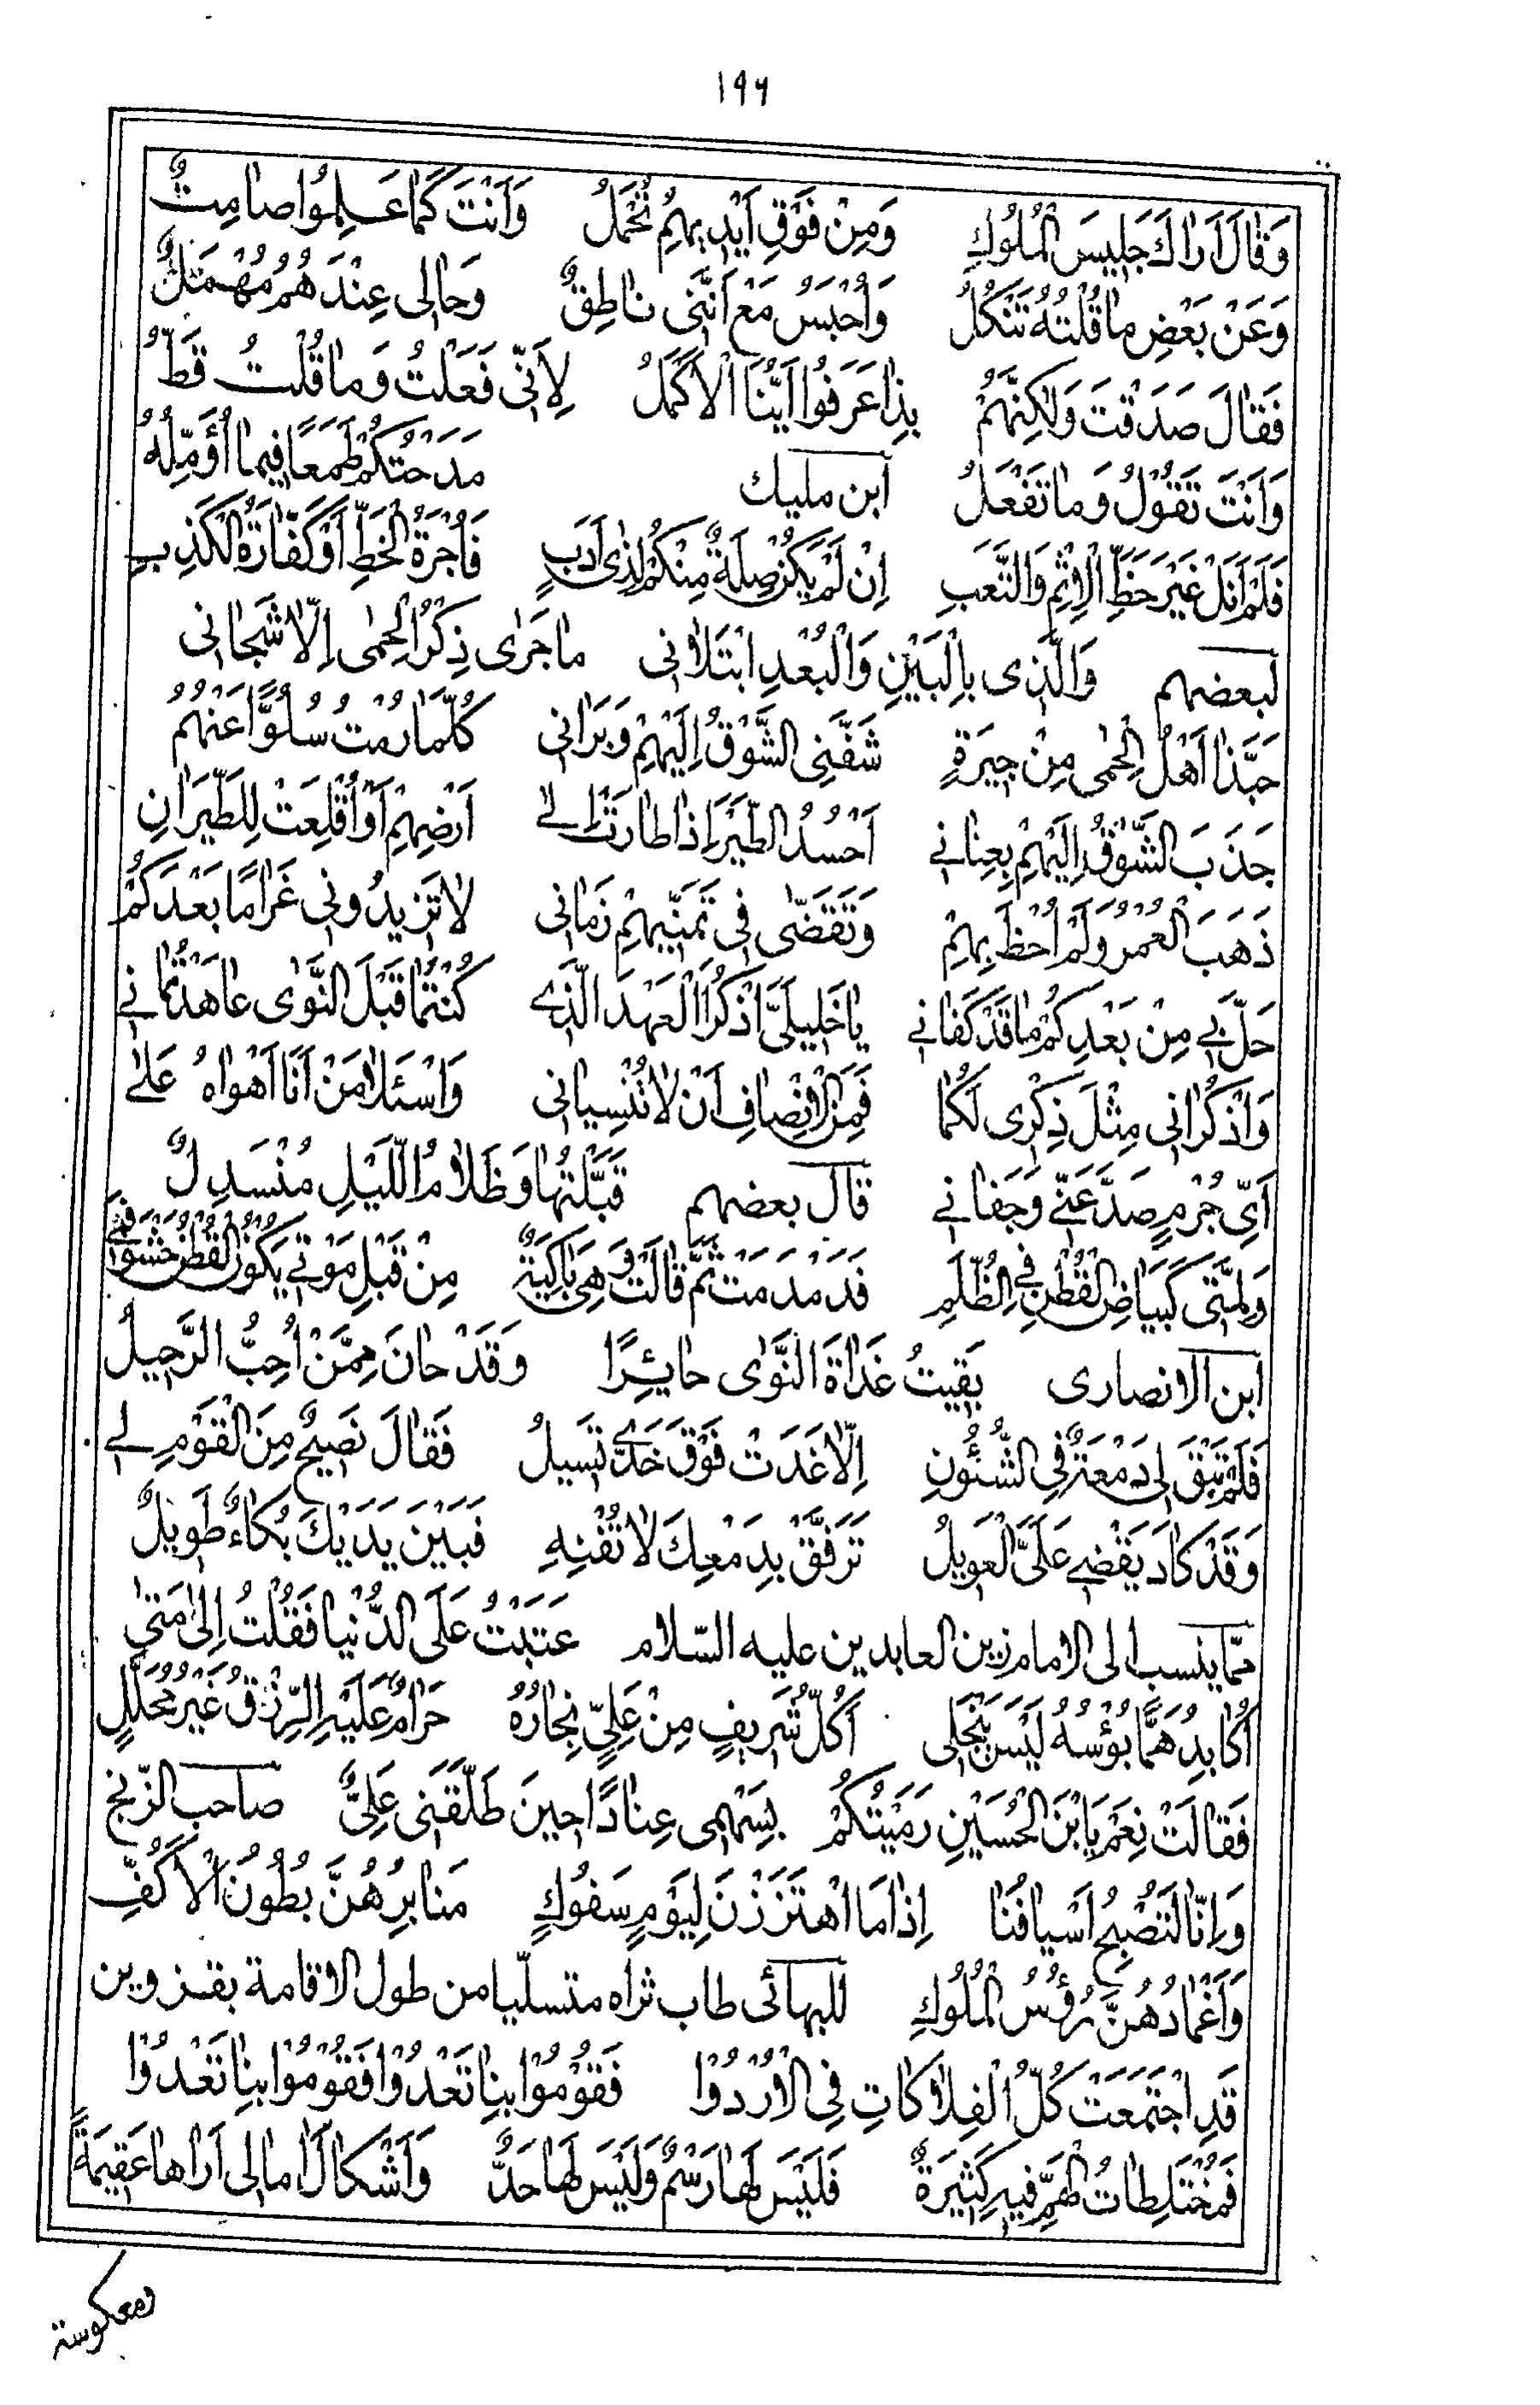 ١٩٦
وَقٰالَ اَرٰاكَ جَلِيسَ الْمُلُوكِ وَمِنْ فَوْقِ اَيْدِيهِمُ تُحْمَلُ وَاَنْتَ كَمٰا عَلِمُوا صٰامِتٌ
وَعَنْ بَعْضِ مٰا قُلْتَهُ تَنْكُلُ وَاُحْبَسُ مَعْ اَنَّنِى نٰاطِقٌ وَحٰالِى عِنْدَهُمُ مُهْمَلٌ
فَقٰالَ صَدَقْتَ وَلٰكِنَّهُمُ بِذٰا عَرَفُوا اَيُّنَا الْاَكْمَلُ لِاَنّى فَعَلْتُ وَمٰا قُلْتُ قَطُّ
وَاَنْتَ تَقُولُ وَمٰا تَفْعَلُ ابن مليك مَدَحْتُكُمْ طَمَعًا فِيمٰا اُؤَمِّلُهُ
فَلَمْ اَنَلْ غَيْرَ حَظِّ الْاِثْمِ وَالتَّعَبِ اِنْ لَمْ يَكُنْ صِلَةٌ مِنْكُمْ لِذِى اَدَبٍ فَاُجْرَةُ الْخَطِّ اَوْ كَفّٰارَةُ الْكَذِبِ
لبعضهم وَالَّذِى بِالْبَيْنِ وَالْبُعْدِ ابْتَلٰانِى مٰا جَرٰى ذِكْرُ الْحِمٰى اِلّٰا شَجٰانِى
حَبَّذٰا اَهْلُ الْحِمٰى مِنْ جِيرَةٍ شَفَّنِى الشَّوْقُ اِلَيْهِمْ وَبَرَانِى كُلَّمٰا رُمْتُ سُلُوًّا عَنْهُمُ
جَذَبَ الشَّوْقُ اِلَيْهِمْ بِعِنٰانِى اَحْسُدُ الطَّيْرَ اِذٰا طٰارَتْ اِلىٰ اَرْضِهِمْ اَوْ اُقْلِعَتْ لِلطَّيَرٰانِ
ذَهَبَ الْعُمْرُ وَلَمْ اَحْظَ بِهِمْ وَتَقَضّٰى فِى تَمَنِّيهِمْ زَمٰانِى لٰا تَزِيدُونِى غَرٰامًا بَعْدَكُمْ
حَلَّ بِى مِنْ بَعْدِكُمْ مٰا قَدْ كَفٰانِى يٰا خَلِيلَىَّ اذْكُرَا الْعَهْدَ الَّذِى كُنْتُمٰا قَبْلَ النَّوٰى عٰاهَدْتُمٰانِى
وَاذْكُرٰانِى مِثْلَ ذِكْرِى لَكُمٰا فَمِنَ الْاِنْصٰافِ اَنْ لٰا تُنْسِيٰانِى وَاسْئَلٰا مَنْ اَنَا اَهْوٰاهُ عَلىٰ
اَىِّ جُرْمٍ صَدَّ عَنِّى وَجَفٰانِى قال بعضهم قَبَّلْتُهٰا وَظَلٰامُ اللَّيْلِ مُنْسَدِلٌ
وَلِمَّتِى كَبَيٰاضِ الْقُطْنِ فِى الظُّلَمِ فَدَمْدَمَتْ ثُمَّ قٰالَتْ وَهِىَ بٰاكِيَةٌ مِنْ قَبْلِ مَوْتِى يَكُونُ الْقُطْنُ حَشْوَ فَمِى
ابن الانصارى بَقِيتُ غَدٰاةَ النَّوٰى حٰائِرًا وَقَدْ حٰانَ مِمَّنْ اُحِبُّ الرَّحِيلُ
فَلَمْ تَبْقَ لِى دَمْعَةٌ فِى الشُّئُونِ اِلّٰا غَدَتْ فَوْقَ خَدّى تَسِيلُ فَقٰالَ نَصِيحٌ مِنَ الْقَوْمِ لِى
وَقَدْ كٰادَ يَقْضِى عَلَىَّ الْعَوِيلُ تَرَفَّقْ بِدَمْعِكَ لٰا تُفْنِهِ فَبَيْنَ يَدَيْكَ بُكٰاءٌ طَوِيلٌ
ممّا ينسب الى الامام زين العابدين عليه السّلام عَتَبْتُ عَلَى الدُّنْيٰا فَقُلْتُ اِلىٰ مَتىٰ
اُكٰابِدُ هَمًّا بُؤْسُهُ لَيْسَ يَنْجَلِى اَكُلُّ شَرِيفٍ مِنْ عَلِىٍّ نِجٰارُهُ حَرٰامٌ عَلَيْهِ الرِّزْقُ غَيْرُ مُحَلَّلٍ
فَقٰالَتْ نَعَمْ يَا بْنَ الْحُسَيْنِ رَمَيْتُكُمْ بِسَهْمِى عِنٰادًا حِينَ طَلَّقَنِى عَلِىٌّ صاحب الزّنج
وَاِنّٰا لَتُصْبِحُ اَسْيٰافُنٰا اِذٰا مَا اهْتَزَزْنَ لِيَوْمٍ سَفُوكٍ مَنٰابِرُهُنَّ بُطُونُ الْاَكُفِّ
وَاَغْمٰادُهُنَّ رُؤُسُ الْمُلُوكِ للبهائى طاب ثراه متسلّيا من طول الاقامة بقزوين
قَدِ اجْتَمَعَتْ كُلُّ الْفِلٰاكٰاتِ فِى الْاُرْدُوْا فَقُوْمُوْا بِنٰا نَعْدُوْا فَقُوْمُوْا بِنٰا نَعْدُوْا
فَمُخْتَلِطٰاتُ الْهَمِّ فِيهِ كَثِيرَةٌ فَلَيْسَ لَهٰا رَسْمٌ وَلَيْسَ لَهٰا حَدٌّ وَاَشْكٰالُ اٰمٰالِى اَرٰاهٰا عَقِيمَةً
ومعكوسة